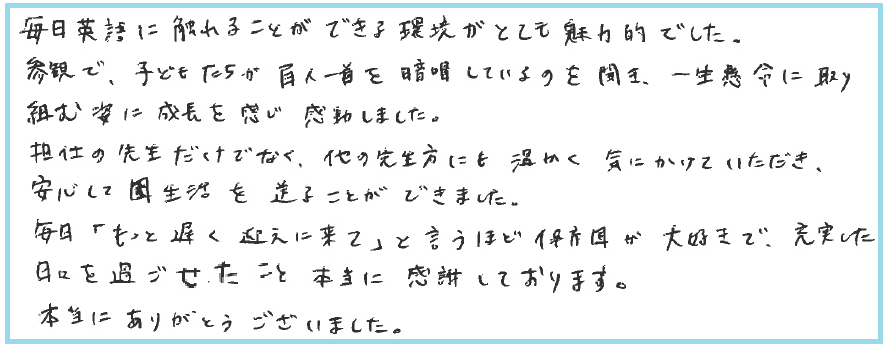 毎日英語に触れることができる環境がとても魅力的でした。
参観で、子どもたちが百人一首を暗唱しているのを聞き、一生懸命に取り
組む姿に成長を感じ感動しました。
担任の先生だけでなく、他の先生方にも温かく気にかけていただき、
安心して園生活を送ることができました。
毎日「もっと遅く迎えに来て」と言うほど保育園が大好きで、充実した
日々を過ごせたこと本当に感謝しております。
本当にありがとうございました。